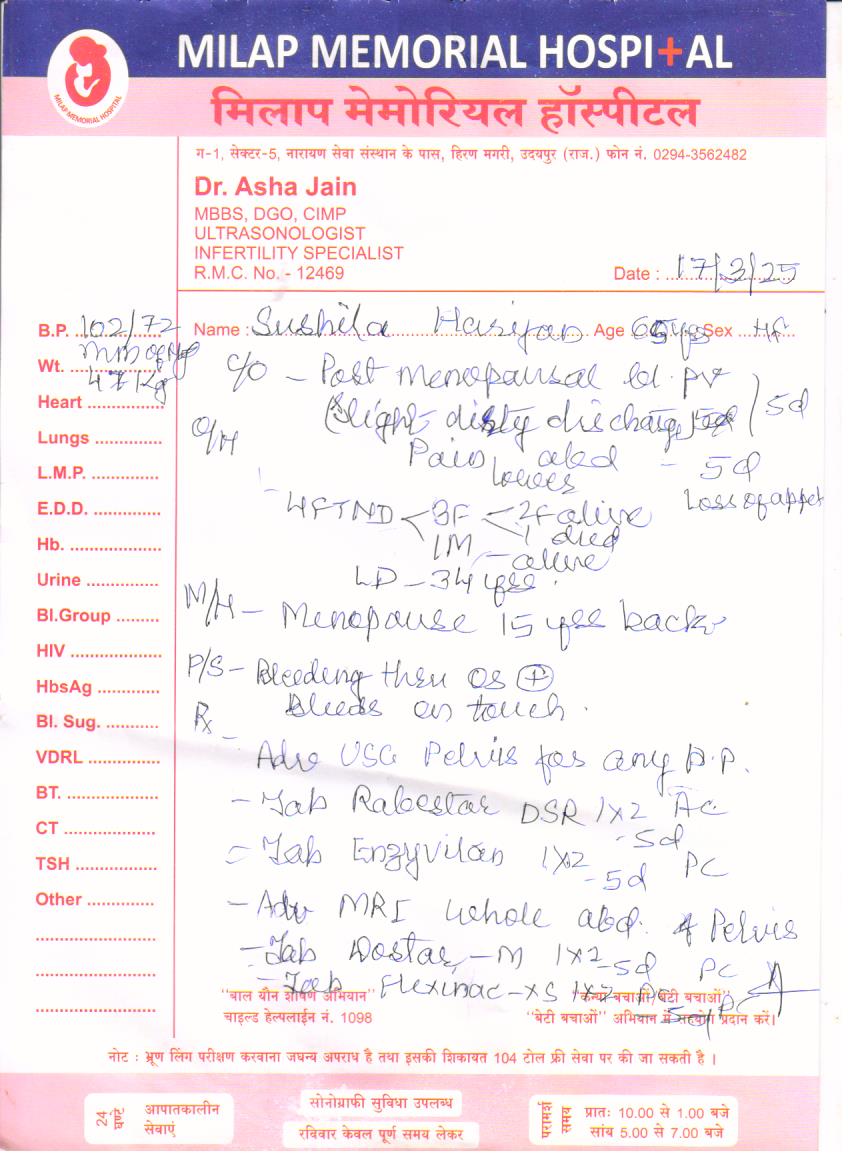 MILAP MEMORIAL HOSPITAL
MILAP MEMORIAL HOSPITAL
मिलाप मेमोरियल हॉस्पीटल
ग-1, सेक्टर-5, नारायण सेवा संस्थान के पास, हिरण मगरी, उदयपुर (राज.) फोन नं. 0294-3562482
Dr. Asha Jain
MBBS, DGO, CIMP
ULTRASONOLOGIST
INFERTILITY SPECIALIST
R.M.C. No. - 12469
Date : 17/3/25
B.P. 102/72
mm of Hg
Name : Sushila Harijan Age 65 yrs Sex F
Wt. 47 Kg
Heart
Lungs
L.M.P.
E.D.D.
Hb.
Urine
Bl.Group
HIV
HbsAg
Bl. Sug.
VDRL
BT.
CT
TSH
Other
C/O - Post menopausal bl. pv
(Slight dirty discharge) 5d
O/H
Pain abd - 5d
lower
Loss of appet
4FTND < 3F < 2F alive
1 died
1M - alive
LD - 34 yrs.
M/H - Menopause 15 yrs back
P/S - Bleeding thru OS +
Bleeds on touch.
Rx
- Adv USG Pelvis for any p.p.
- Tab Rabestar DSR 1x2 AC
- 5d
- Tab Enzyvilan 1x2 PC
- 5d
- Adv MRI whole abd. & Pelvis
- Tab Dostar-M 1x2 PC
- 5d
- Tab Flexinac-XS 1x2 PC
- 5d
"बाल यौन शोषण अभियान"
चाइल्ड हेल्पलाईन नं. 1098
"कन्या बचाओ बेटी बचाओ"
"बेटी बचाओ" अभियान में सहयोग प्रदान करें।
नोट : भ्रूण लिंग परीक्षण करवाना जघन्य अपराध है तथा इसकी शिकायत 104 टोल फ्री सेवा पर की जा सकती है ।
24 घण्टे
आपातकालीन
सेवाएं
सोनोग्राफी सुविधा उपलब्ध
रविवार केवल पूर्ण समय लेकर
परामर्श समय
प्रातः 10.00 से 1.00 बजे
सांय 5.00 से 7.00 बजे